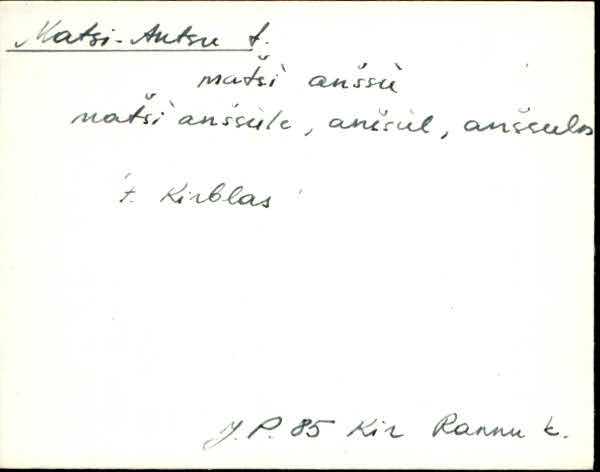 Matsi-Antsu t.
matši̬ anšsù
matši̬ anšsùle, anšsùl, anšsulos
't. Kirblas'
J. P. 85 Kir Rannu k.